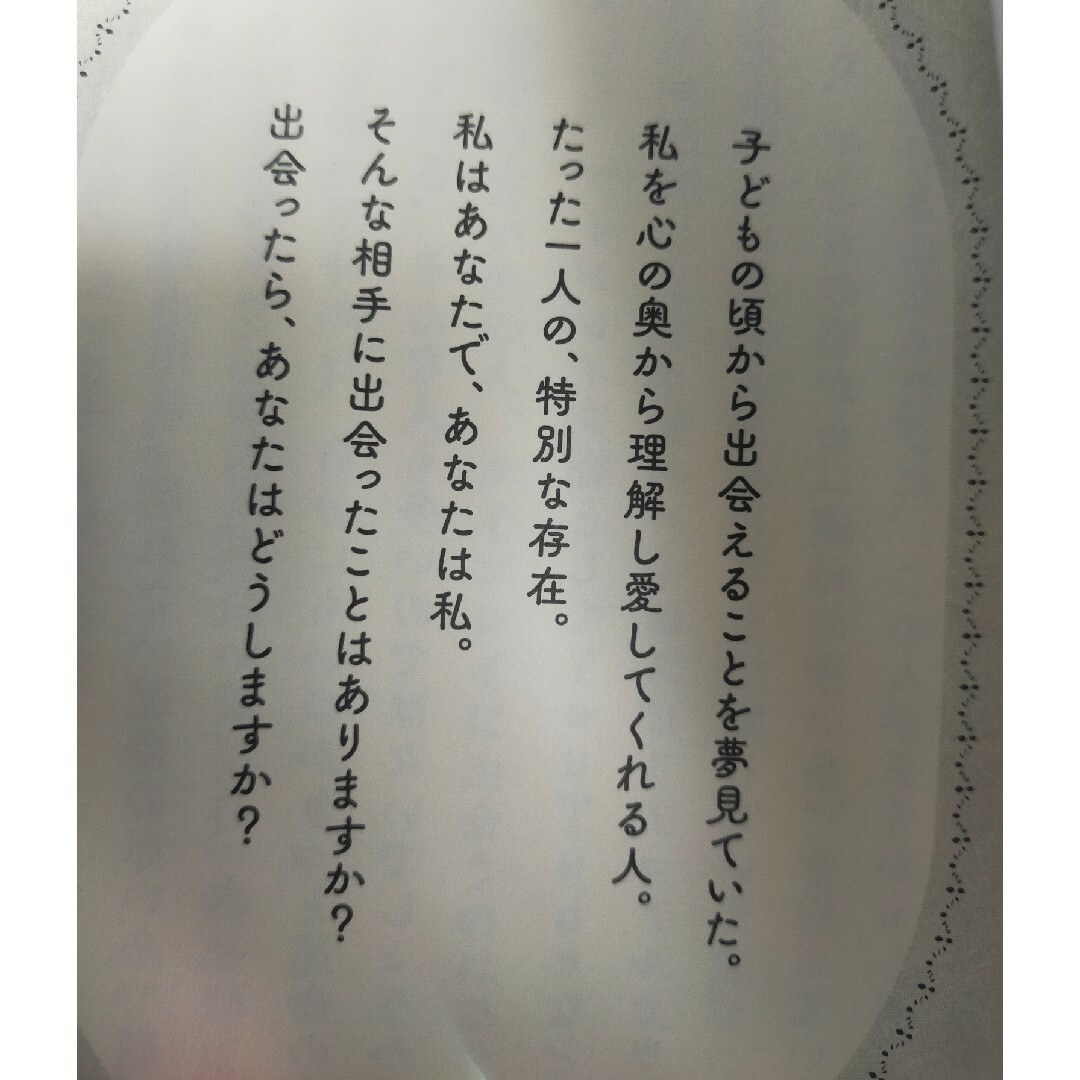 子どもの頃から出会えることを夢見ていた。
私を心の奥から理解し愛してくれる人。
たった一人の、特別な存在。
私はあなたで、あなたは私。
そんな相手に出会ったことはありますか？
出会ったら、あなたはどうしますか？